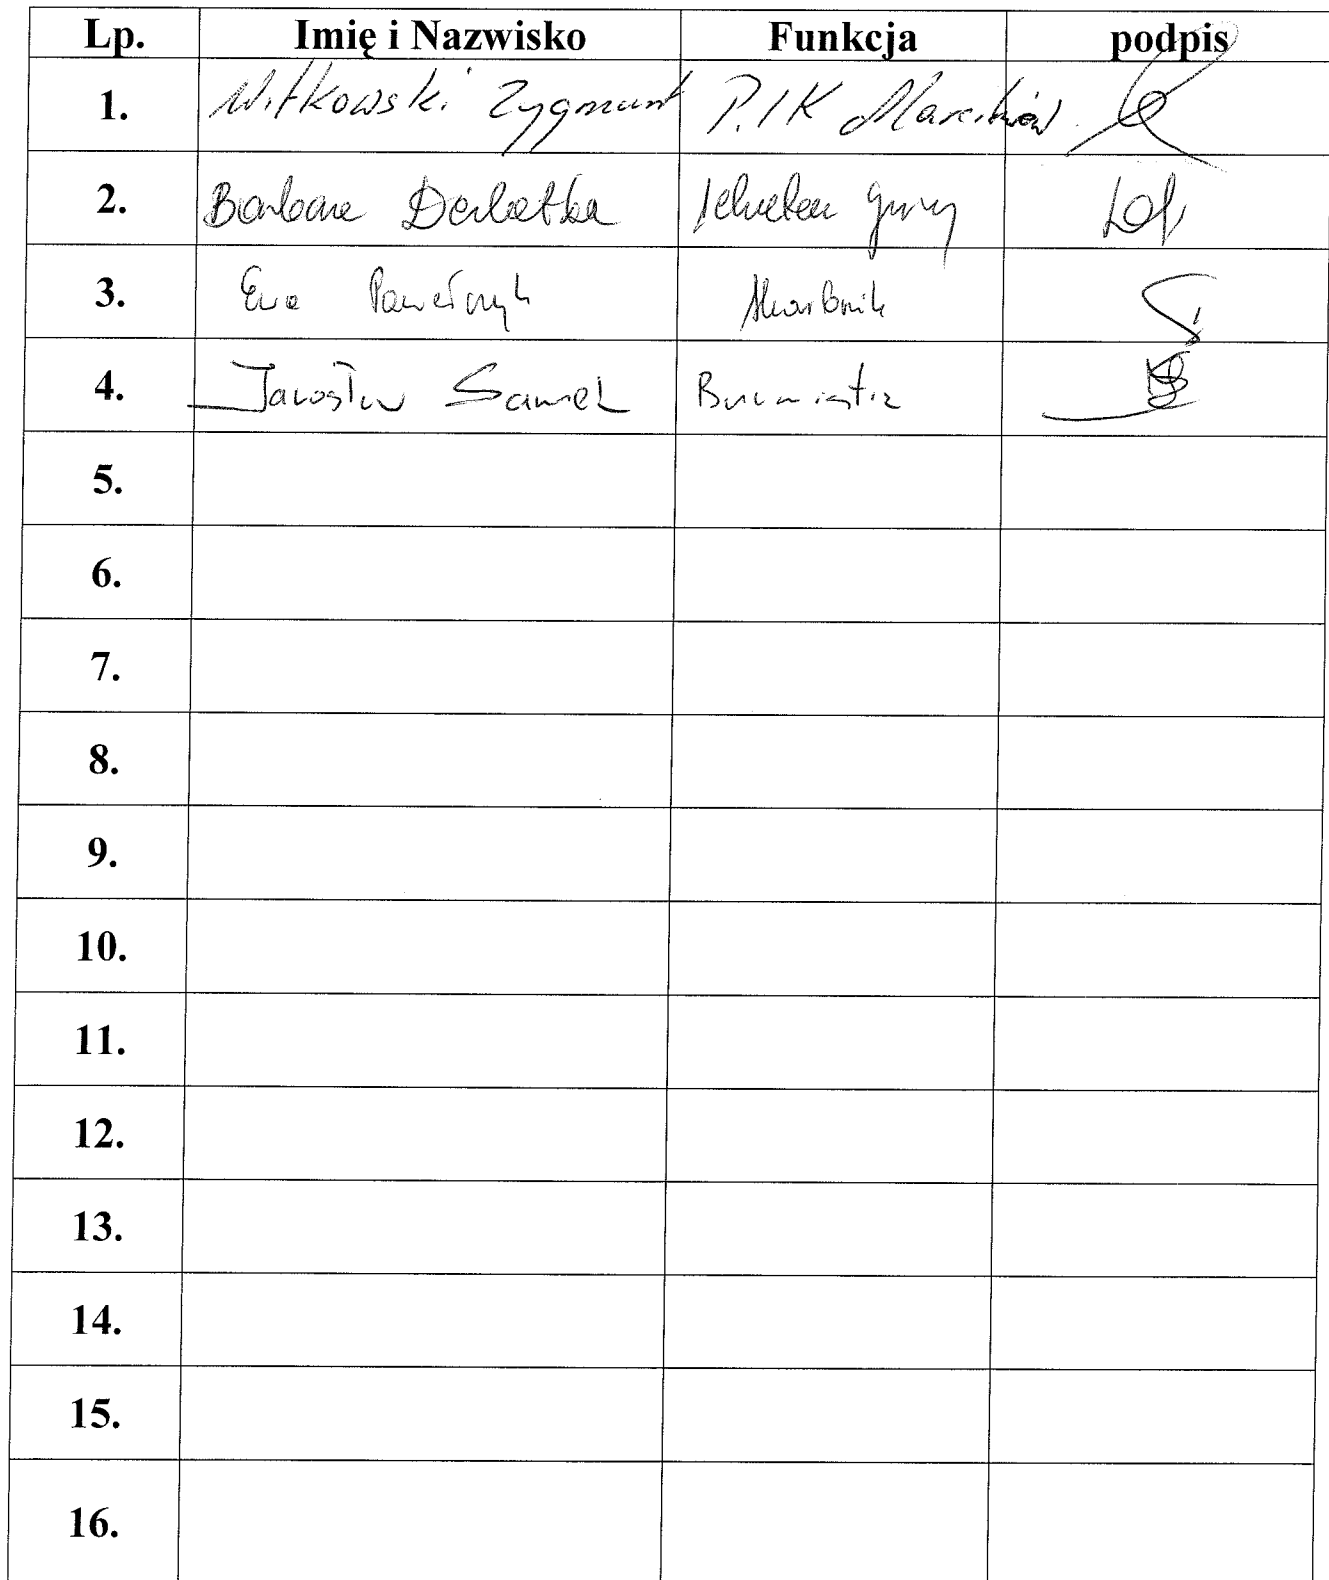 Lp. Imię i Nazwisko Funkcja podpis
1. Witkowski Zygmunt P.IK
2. Barbara Derlatka Sekretarz gminy
3. Ewa Pawełczyk Skarbnik
4. Jarosław Samek Burmistrz
5.
6.
7.
8.
9.
10.
11.
12.
13.
14.
15.
16.